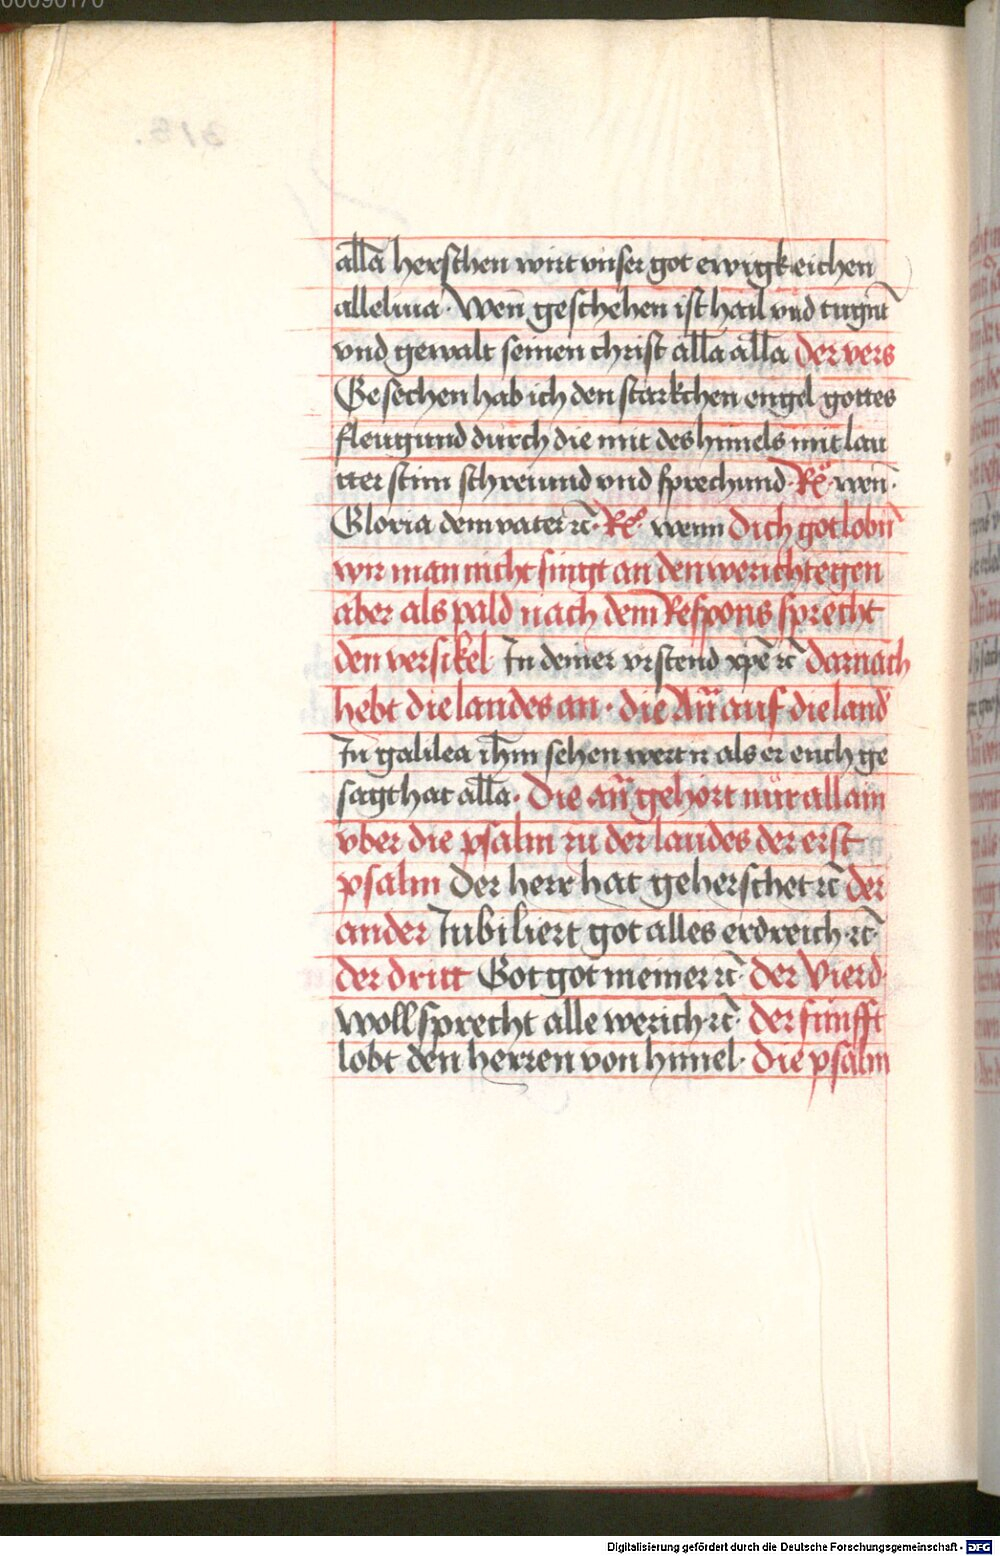 alla herschen wirt vnser got ewigkeichen
alleluia · Wen̄ geschehen ist hail vnd tugn̄t
vnd gewalt seinen christ alla alla der vers
Gesechen hab ich den starkchen engel gottes
fleugund durch die mit des himels mit lau
tter stim schreiund vnd sprechund · Rx̄ · wen̄ ·
Gloria dem vater rc̄ · Rx̄ · wenn Dich got lobn̄
wir man nicht singt an den werichtegen
aber als pald nach dem Respons sprecht
den versikel In deiner vrstend xp̄e rc̄ darnach
hebt die laudes an · die An̄ auf die laud
In galilea ihm sehen wert ir als er euch ge
sagt hat alla · Die an̄ gehort nür allain
vber die psalm zu der laudes der erst
psalm Der herr hat geherschet rc̄ der
ander Jubiliert got alles erdreich · rc̄ ·
der dritt Got got meiner rc̄ · der Vierd ·
woll sprecht alle werich · rc̄ · der fünfft
lobt den herren von himel · Die psalm
Digitalisierung gefördert durch die Deutsche Forschungsgemeinschaft - DFG